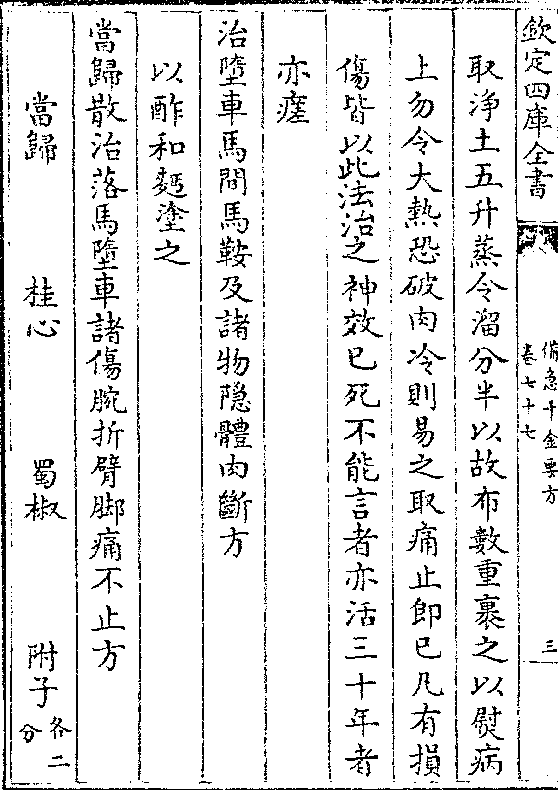 欽定四庫全書
備急千金要方
卷七十七
三
取淨土五升蒸令溜分半以故布數重裹之以熨病
上勿令大熱恐破肉冷則易之取痛止即已凡有損
傷皆以此法治之神效已死不能言者亦活三十年者
亦瘥
治墮車馬間馬鞍及諸物隱體肉斷方
以酢和麪塗之
當歸散治落馬墮車諸傷腕折臂脚痛不止方
當歸 桂心 蜀椒 附子各二分